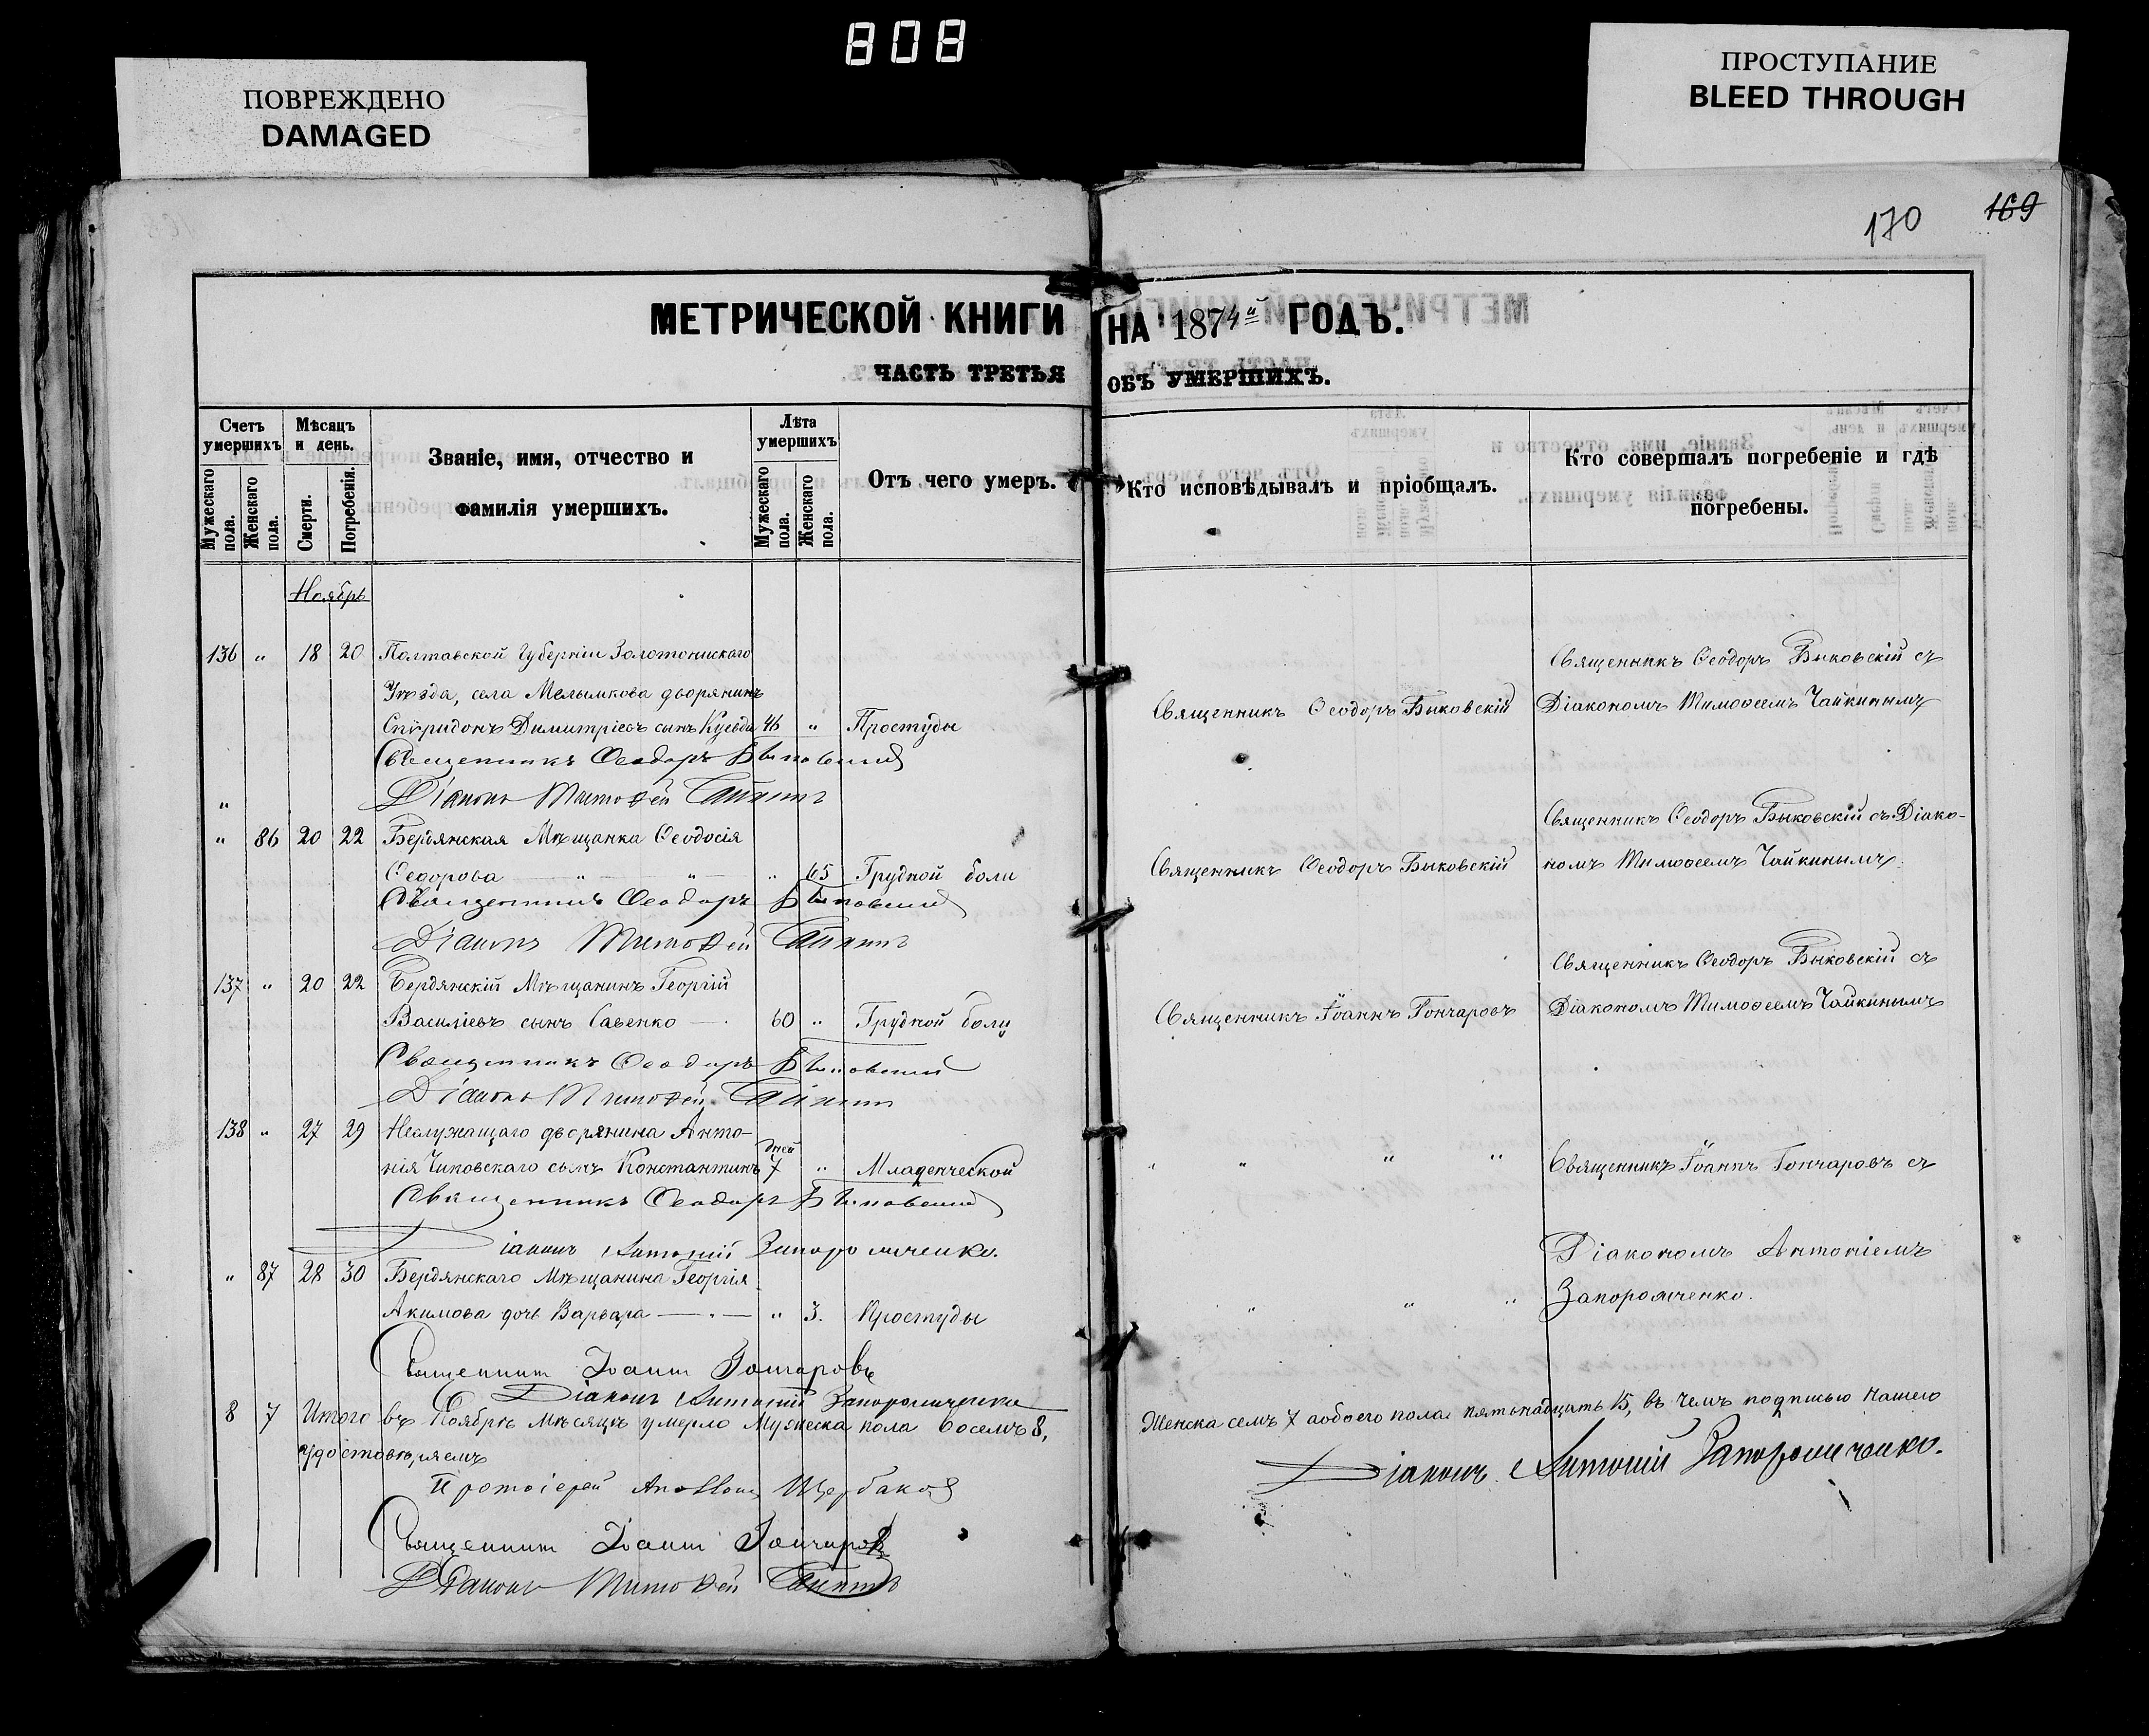 808
ПОВРЕЖДЕНО
DAMAGED
ПРОСТУПАНИЕ
BLEED THROUGH
170 169
МЕТРИЧЕСКОЙ КНИГИ НА 1874й ГОДЪ.
ЧАСТЬ ТРЕТЬЯ ОБЪ УМЕРШИХЪ.
Счетъ умершихъ
Мужескаго пола.
Женскаго пола.
Мѣсяцъ и день.
Смерти.
Погребенія.
Званіе, имя, отчество и
фамилія умершихъ.
Лѣта умершихъ
Мужескаго пола.
Женскаго пола.
Отъ чего умеръ.
Кто исповѣдывалъ и пріобщалъ.
Кто совершалъ погребеніе и гдѣ
погребены.
Ноябрь
136 " 18 20 Полтавской Губерніи Золотонискаго
Уѣзда, села Мелымкова дворянинъ
Спѵридонъ Димитріевъ сынъ 46 " Простуды
Священникъ Ѳеодоръ Быковскій
Священникъ Ѳеодоръ Быковскій съ
Діакономъ Тимоѳеемъ Чайкинымъ
Священникъ Ѳеодоръ Быковскій
Діаконъ Тимоѳей Чайкинъ
" 86 20 22 Бердянская Мѣщанка Ѳеодосія
Ѳедорова — " — " — " 65 Грудной боли
Священникъ Ѳеодоръ Быковскій
Священникъ Ѳеодоръ Быковскій съ Діако-
номъ Тимоѳеемъ Чайкинымъ.
Священникъ Ѳеодоръ Быковскій
Діаконъ Тимоѳей Чайкинъ
137 " 20 22 Бердянскій Мѣщанинъ Георгій
Василіевъ сынъ Савенко — 60 " Грудной боли
Священникъ Іоаннъ Гончаровъ
Священникъ Ѳеодоръ Быковскій съ
Діакономъ Тимоѳеемъ Чайкинымъ
Священникъ Ѳеодоръ Быковскій
Діаконъ Тимоѳей Чайкинъ
138 " 27 29 Неслужащаго дворянина Анто-
нія Чиковскаго сынъ Константинъ дней 7 " Младенческой
" " " "
Священникъ Іоаннъ Гончаровъ съ
Діакономъ Антоніемъ
Запорожченко.
Священникъ Ѳеодоръ Быковскій
Діаконъ Антоній Запорожченко.
" 87 28 30 Бердянскаго Мѣщанина Георгія
Акимова дочь Варвара — " — " 3. Простуды
" " "
Священникъ Іоаннъ Гончаровъ
Діаконъ Антоній Запорожченко
8 7 Итого въ Ноябрѣ Мѣсяцѣ умерло Мужеска пола восемъ 8, Женска семъ 7 аобоего пола пятьнадцать 15, въ чемъ подписью нашею
удостовѣряемъ
Протоіерей Аполлонъ Щербаковъ
Діаконъ Антоній Запорожченко.
Священникъ Іоаннъ Гончаровъ
Діаконъ Тимоѳей Чайкинъ